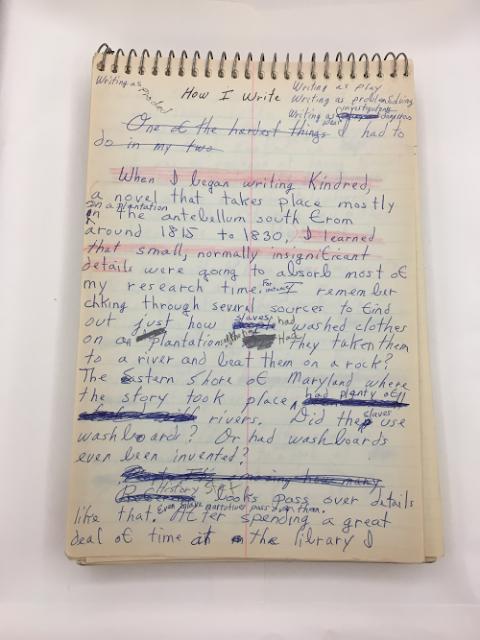 Writing as
Writing as play
How I Write
Writing as problem solving
Writing as investigating
One of the hardest things I had to
do in my two
When I began writing Kindred,
a novel that takes place mostly
on a plantation
in the antebellum south from
around 1815 to 1830, I learned
that small, normally insignificant
details were going to absorb most of
my research time. For I remember
chking through several sources to find
out just how slaves had washed clothes
on a plantation. Had they taken them
to a river and beat them on a rock?
The Eastern Shore of Maryland where
the story took place, had plenty of
rivers. Did the slaves use
washboards? Or had washboards
even been invented?
History books pass over details
Even slave narratives pass over them.
like that. After spending a great
deal of time at the library I